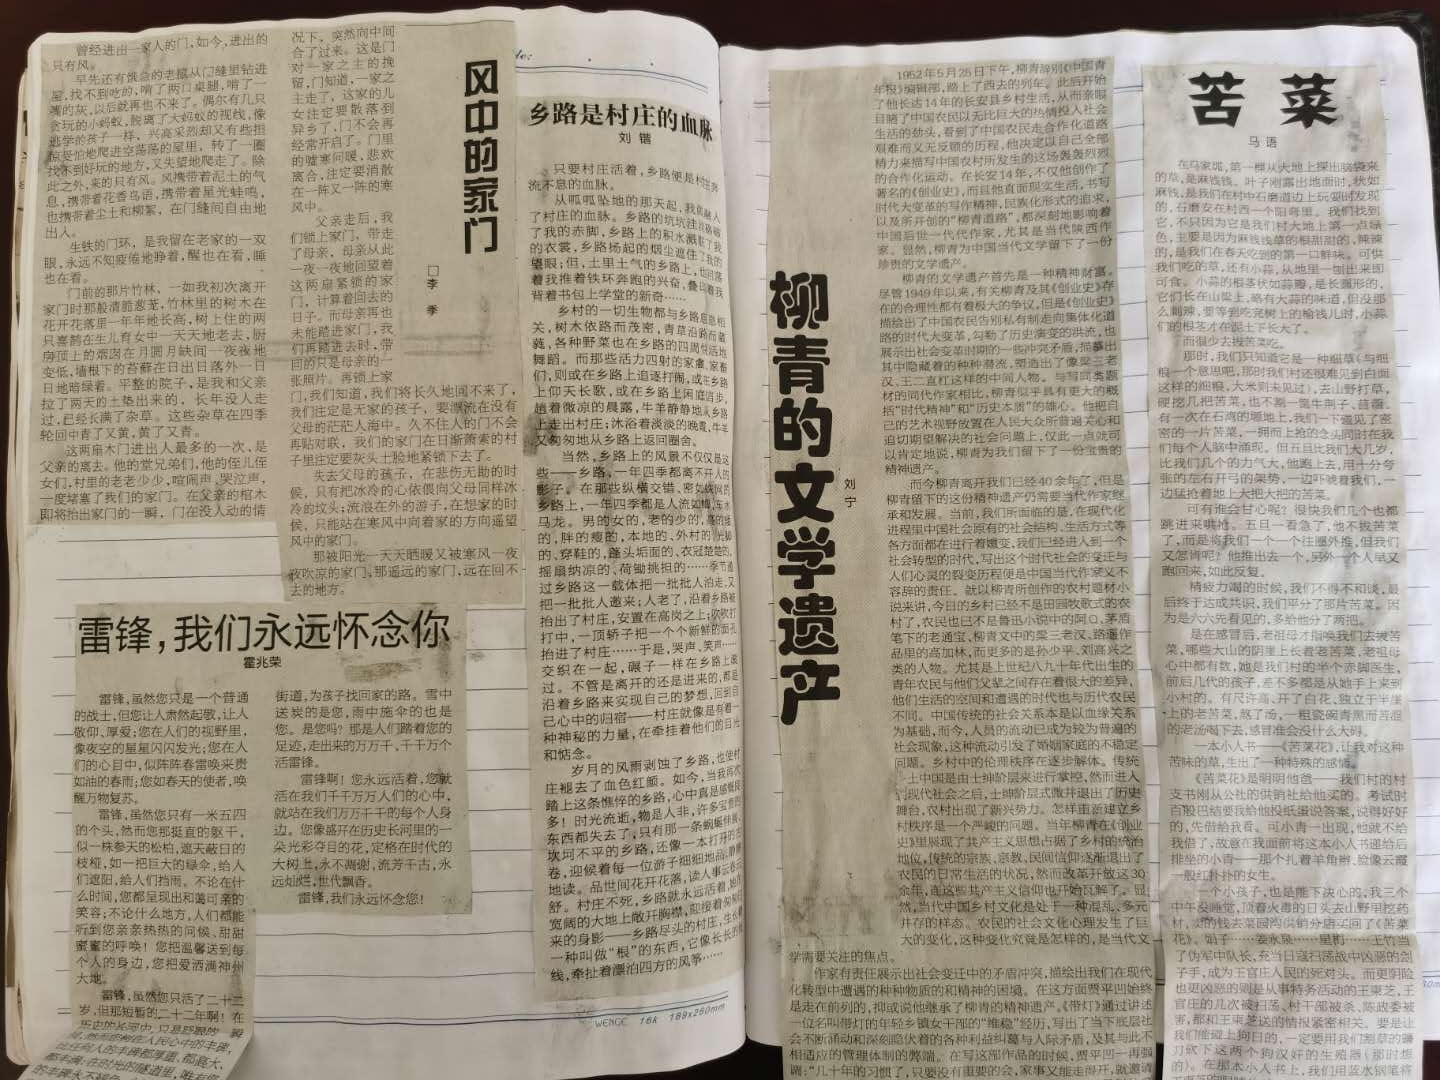 风中的家门
□李 季
曾经进出一家人的门,如今,进出的
只有风。
早先还有饿急的老鼠从门缝里钻进
屋,找不到吃的,啃了两口桌腿,啃了一
嘴的灰,以后就再也不来了。偶尔有几只
贪玩的小蚂蚁,脱离了大蚂蚁的视线,像
逃学的孩子一样,兴高采烈却又有些担
惊受怕地爬进空荡荡的屋里,转了一圈
找不到好玩的地方,又失望地爬走了。除
此之外,来的只有风。风携带着泥土的气
息,携带着花香鸟语,携带着星光蛙鸣,
也携带着尘土和柳絮,在门缝间自由地
出入。
生铁的门环,是我留在老家的一双
眼,永远不知疲倦地睁着,醒也在看,睡
也在看。
门前的那片竹林,一如我初次离开
家门时那般清脆葱茏,竹林里的树木在
花开花落里一年年地长高,树上住的两
只喜鹊在生儿育女中一天天地老去,厨
房顶上的烟囱在月圆月缺间一夜夜地
变低,墙根下的苔藓在日出日落外一日
日地暗绿着。平整的院子,是我和父亲
拉了两天的土垫出来的,长年没人走
过,已经长满了杂草。这些杂草在四季
轮回中青了又黄,黄了又青。
这两扇木门进出人最多的一次,是
父亲的离去。他的堂兄弟们,他的侄儿侄
女们,村里的老老少少,喧闹声,哭泣声,
一度堵塞了我们的家门。在父亲的棺木
即将抬出家门的一瞬,门在没人动的情
况下,突然向中间
合了过来。这是门
对一家之主的挽
留,门知道,一家之
主走了,这家的儿
女注定要散落到
异乡了,门不会再
经常开启了。门里
的嘘寒问暖,悲欢
离合,注定要消散
在一阵又一阵的寒
风中。
父亲走后,我
们锁上家门,带走
了母亲,母亲从此
一夜一夜地回望着
这两扇紧锁的家
门,计算着回去的
日子。而母亲再也
未能踏进家门,我
们再踏进去时,带
回的只是母亲的一
张照片。再锁上家
门,我们知道,我们将长久地回不来了,
我们注定是无家的孩子,要漂流在没有
父母的茫茫人海中。久不住人的门不会
再贴对联,我们的家门在日渐萧索的村
子里注定要灰头土脸地紧锁下去了。
失去父母的孩子,在悲伤无助的时
候,只有把冰冷的心依偎向父母同样冰
冷的坟头;流浪在外的游子,在想家的时
候,只能站在寒风中向着家的方向遥望
风中的家门。
那被阳光一天天晒暖又被寒风一夜
夜吹凉的家门,那遥远的家门,远在回不
去的地方。
雷锋,我们永远怀念你
霍兆荣
雷锋,虽然您只是一个普通
的战士,但您让人肃然起敬,让人
敬仰、厚爱;您在人们的视野里,
像夜空的星星闪闪发光;您在人
们的心目中,似阵阵春雷唤来贵
如油的春雨;您如春天的使者,唤
醒万物复苏。
雷锋,虽然您只有一米五四
的个头,然而您那挺直的躯干,
似一株参天的松柏,遮天蔽日的
枝桠,如一把巨大的绿伞,给人
们遮阳,给人们挡雨。不论在什
么时间,您都呈现出和蔼可亲的
笑容;不论什么地方,人们都能
听到您亲亲热热的问候、甜甜
蜜蜜的呼唤!您把温馨送到每
个人的身边,您把爱洒满神州
大地。
雷锋,虽然您只活了二十二
岁,但那短暂的二十二年啊!在
街道,为孩子找回家的路。雪中
送炭的是您,雨中施伞的也是
您。是您吗?那是人们踏着您的
足迹,走出来的万万千,千千万个
活雷锋。
雷锋啊!您永远活着,您就
活在我们千千万万人们的心中,
就站在我们万万千千的每个人身
边。您像盛开在历史长河里的一
朵光彩夺目的花,定格在时代的
大树上,永不凋谢,流芳千古,永
远灿烂,世代飘香。
雷锋,我们永远怀念您!
乡路是村庄的血脉
刘 锴
只要村庄活着,乡路便是村庄奔
流不息的血脉。
从呱呱坠地的那天起,我便融入
了村庄的血脉。乡路的坑坑洼洼
了我的赤脚,乡路上的积水溅脏了我
的衣裳,乡路扬起的烟尘遮住了我的
望眼;但,土里土气的乡路上,也回荡
着我推着铁环奔跑的兴奋,叠印着我
背着书包上学堂的新奇……
乡村的一切生物都与乡路息息相
关,树木依路而茂密,青草沿路而葳
蕤,各种野菜也在乡路的四周快活地
舞蹈。而那些活力四射的家禽、家畜
们,则或在乡路上追逐打闹,或在乡路
上仰天长歌,或在乡路上闲庭信步,
趟着微凉的晨露,牛羊静静地从乡路
上走出村庄;沐浴着淡淡的晚霞,牛羊
又匆匆地从乡路上返回圈舍。
当然,乡路上的风景不仅仅是这
些——乡路,一年四季都离不开人的
影子。在那些纵横交错、密如蛛网的
乡路上,一年四季都是人流如梭,车水
马龙。男的女的,老的少的,高的矮
的,胖的瘦的,本地的、外村的,光脚
的、穿鞋的,蓬头垢面的、衣冠楚楚的,
摇扇纳凉的、荷锄挑担的……季节通
过乡路这一载体把一批批人泊走,又
把一批批人邀来;人老了,沿着乡路被
抬出了村庄,安置在高岗之上;吹吹打
打中,一顶轿子把一个个新鲜的面孔
抬进了村庄……于是,哭声,笑声……
交织在一起,碾子一样在乡路上滚
过。不管是离开的还是进来的,都是
沿着乡路来实现自己的梦想,回到自
己心中的归宿——村庄就像是有着一
种神秘的力量,在牵挂着他们的目光
和惦念。
岁月的风雨剥蚀了乡路,也使村
庄褪去了血色红颜。如今,当我再次
踏上这条憔悴的乡路,心中真是感慨良
多!时光流逝,物是人非,许多宝贵的
东西都失去了,只有那一条蜿蜒伸展、
坎坷不平的乡路,还像一本打开的书
卷,迎候着每一位游子细细地品,静静
地读。品世间花开花落,读人事云卷云
舒。村庄不死,乡路就永远活着,她在
宽阔的大地上敞开胸襟,迎接着匆匆归
来的身影——乡路尽头的村庄,生长着
一种叫做“根”的东西,它像长长的
线,牵扯着漂泊四方的风筝……
WENGE 16k 189x260mm
柳青的文学遗产
刘 宁
1952年5月25日下午,柳青辞别《中国青
年报》编辑部,踏上了西去的列车。此后开始
了他长达14年的长安县乡村生活,从而亲眼
目睹了中国农民以无比巨大的热情投入社会
生活的劲头,看到了中国农民走合作化道路
艰难而义无反顾的历程,他决定以自己全部
精力来描写中国农村所发生的这场轰轰烈烈
的合作化运动。在长安14年,不仅他创作了
著名的《创业史》,而且他直面现实生活,书写
时代大变革的写作精神,民族化形式的追求,
以及所开创的“柳青道路”,都深刻地影响着
中国后世一代代作家,尤其是当代陕西作
家。显然,柳青为中国当代文学留下了一份
珍贵的文学遗产。
柳青的文学遗产首先是一种精神财富。
尽管1949年以来,有关柳青及其《创业史》存
在的合理性都有着极大的争议,但是《创业史》
描绘出了中国农民告别私有制走向集体化道
路的时代大变革,勾勒了历史演变的洪流,也
展示出社会变革时期的一些冲突矛盾,描摹出
其中隐藏着的种种潜流,塑造出了像梁三老
汉、王二直杠这样的中间人物。与写同类题
材的同代作家相比,柳青似乎具有更大的概
括“时代精神”和“历史本质”的雄心。他把自
己的艺术视野放置在人民大众所普遍关心和
迫切期望解决的社会问题上,仅此一点就可
以肯定地说,柳青为我们留下了一份宝贵的
精神遗产。
而今柳青离开我们已经40余年了,但是
柳青留下的这份精神遗产仍需要当代作家继
承和发展。当前,我们所面临的是,在现代化
进程里中国社会原有的社会结构、生活方式等
各方面都在进行着嬗变,我们已经进入到一个
社会转型的时代,写出这个时代社会的变迁与
人们心灵的裂变历程便是中国当代作家义不
容辞的责任。就以柳青所创作的农村题材小
说来讲,今日的乡村已经不是田园牧歌式的农
村了,农民也已不是鲁迅小说中的阿Q、茅盾
笔下的老通宝,柳青文中的梁三老汉、路遥作
品里的高加林,而更多的是孙少平、刘高兴之
类的人物。尤其是上世纪八九十年代出生的
青年农民与他们父辈之间存在着很大的差异,
他们生活的空间和遭遇的时代也与历代农民
不同。中国传统的社会关系本是以血缘关系
为基础,而今,人员的流动已成为较为普遍的
社会现象,这种流动引发了婚姻家庭的不稳定
问题。乡村中的伦理秩序在逐步解体。传统
乡土中国是由士绅阶层来进行掌控,然而进入
到现代社会之后,士绅阶层式微并退出了历史
舞台,农村出现了新兴势力。怎样重新建立乡
村秩序是一个严峻的问题。当年柳青在《创业
史》里展现了共产主义思想占据了乡村的统治
地位,传统的宗族、宗教、民间信仰逐渐退出了
农民的日常生活的状况,然而改革开放这30
余年,连这些共产主义信仰也开始瓦解了。显
然,当代中国乡村文化是处于一种混乱、多元
并存的样态。农民的社会文化心理发生了巨
大的变化,这种变化究竟是怎样的,是当代文
学需要关注的焦点。
作家有责任展示出社会变迁中的矛盾冲突,描绘出我们在现代
化转型中遭遇的种种物质的和精神的困境。在这方面贾平凹始终
是走在前列的,抑或说他继承了柳青的精神遗产。《带灯》通过讲述
一位名叫带灯的年轻乡镇女干部的“维稳”经历,写出了当下底层社
会不断涌动和深刻隐伏着的各种利益纠葛与人际矛盾,及其与此不
相适应的管理体制的弊端。在写这部作品的时候,贾平凹一再强
调:“几十年的习惯了,只要没有重要的会,家事又能走得开,就邀请
苦菜
马 语
在马家坬,第一棵从大地上探出脑袋来
的草,是麻钱钱。叶子刚露出地面时,状如
麻钱,是我们在村中石磨道边上玩耍时发现
的,石磨安在村西一个阳弯里。我们找到
它,不只因为它是我们村大地上第一点绿
色,主要是因为麻钱钱草的根甜甜的,辣辣
的,是我们在春天吃到的第一口鲜味。可供
我们吃的草,还有小蒜,从地里一刨出来即
可食。小蒜的根茎状如蒜瓣,是长圆形的,
它们长在山梁上,略有大蒜的味道,但没那
么刺辣,要等到吃完树上的榆钱儿时,小蒜
们的根茎才在泥土下长大了。
而很少去拔苦菜吃。
那时,我们只知道它是一种细草(与细
粮一个意思吧,那时我们村还很难见到白面
这样的细粮,大米则未见过),去山野打草,
硬挖几把苦菜,也不剜一筐牛荆子、苜蓿。
有一次在石湾的塄地上,我们一下碰见了密
密的一片苦菜,一拥而上抢的念头同时在我
们每个人脑中涌现。但五旦比我们大几岁,
比我们几个的力气大,他跑上去,用十分夸
张的左右开弓的架势,一边吓唬着我们,一
边猛抢着地上大把大把的苦菜。
可有谁会甘心呢?很快我们几个也都
跳进来哄抢。五旦一看急了,他不拔苦菜
了,而是将我们一个一个往圈外推,但我们
又怎肯呢?他推出去一个,另外一个人早又
跑回来,如此反复。
精疲力竭的时候,我们不得不和谈,最
后终于达成共识,我们平分了那片苦菜。因
为是六六先看见的,多给他分了两把。
是在感冒后,老祖母才指唤我们去拔苦
菜,哪些大山的阴崖上长着老苦菜,老祖母
心中都有数,她是我们村的半个赤脚医生,
前后几代的孩子,差不多都是从她手上来到
小村的。有尺许高、开了白花、独立于半崖
上的老苦菜,熬了汤,一粗瓷碗青黑而苦涩
的老汤喝下去,感冒准会没什么大碍。
一本小人书——《苦菜花》,让我对这种
苦味的草,生出了一种特殊的感情。
《苦菜花》是明明他爸——我们村的村
支书刚从公社的供销社给他买的。考试时
百般巴结要我给他投纸蛋说答案,说得好好
的,先借给我看。可小青一出现,他就不给
我借了,故意在我面前将这本小人书递给后
排坐的小青——那个扎着羊角辫,脸像云霞
一般红扑扑的女生。
一个小孩子,也是能下决心的,我三个
中午没睡觉,顶着火毒的日头去山野里挖药
材,卖的钱去菜园沟供销分店买回了《苦菜
花》。娟子……姜永泉……星梅……王竹当
了伪军中队长,充当日寇扫荡战中凶恶的刽
子手,成为王官庄人民的死对头。而更阴险
也更凶恶的则是从事特务活动的王柬芝,王
官庄的几次被扫荡、村干部被杀、陈政委被
害,那和王柬芝送的情报紧密相关。要是让
我们能碰上狗日的,一定要用我们割草的镰
刀砍下这两个狗汉奸的生殖器(那时想
的)。在那本小人书上,我们用蓝水钢笔将